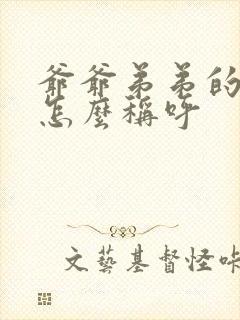 爺爺弟弟的
怎麼稱呼
文藝基督怪咔